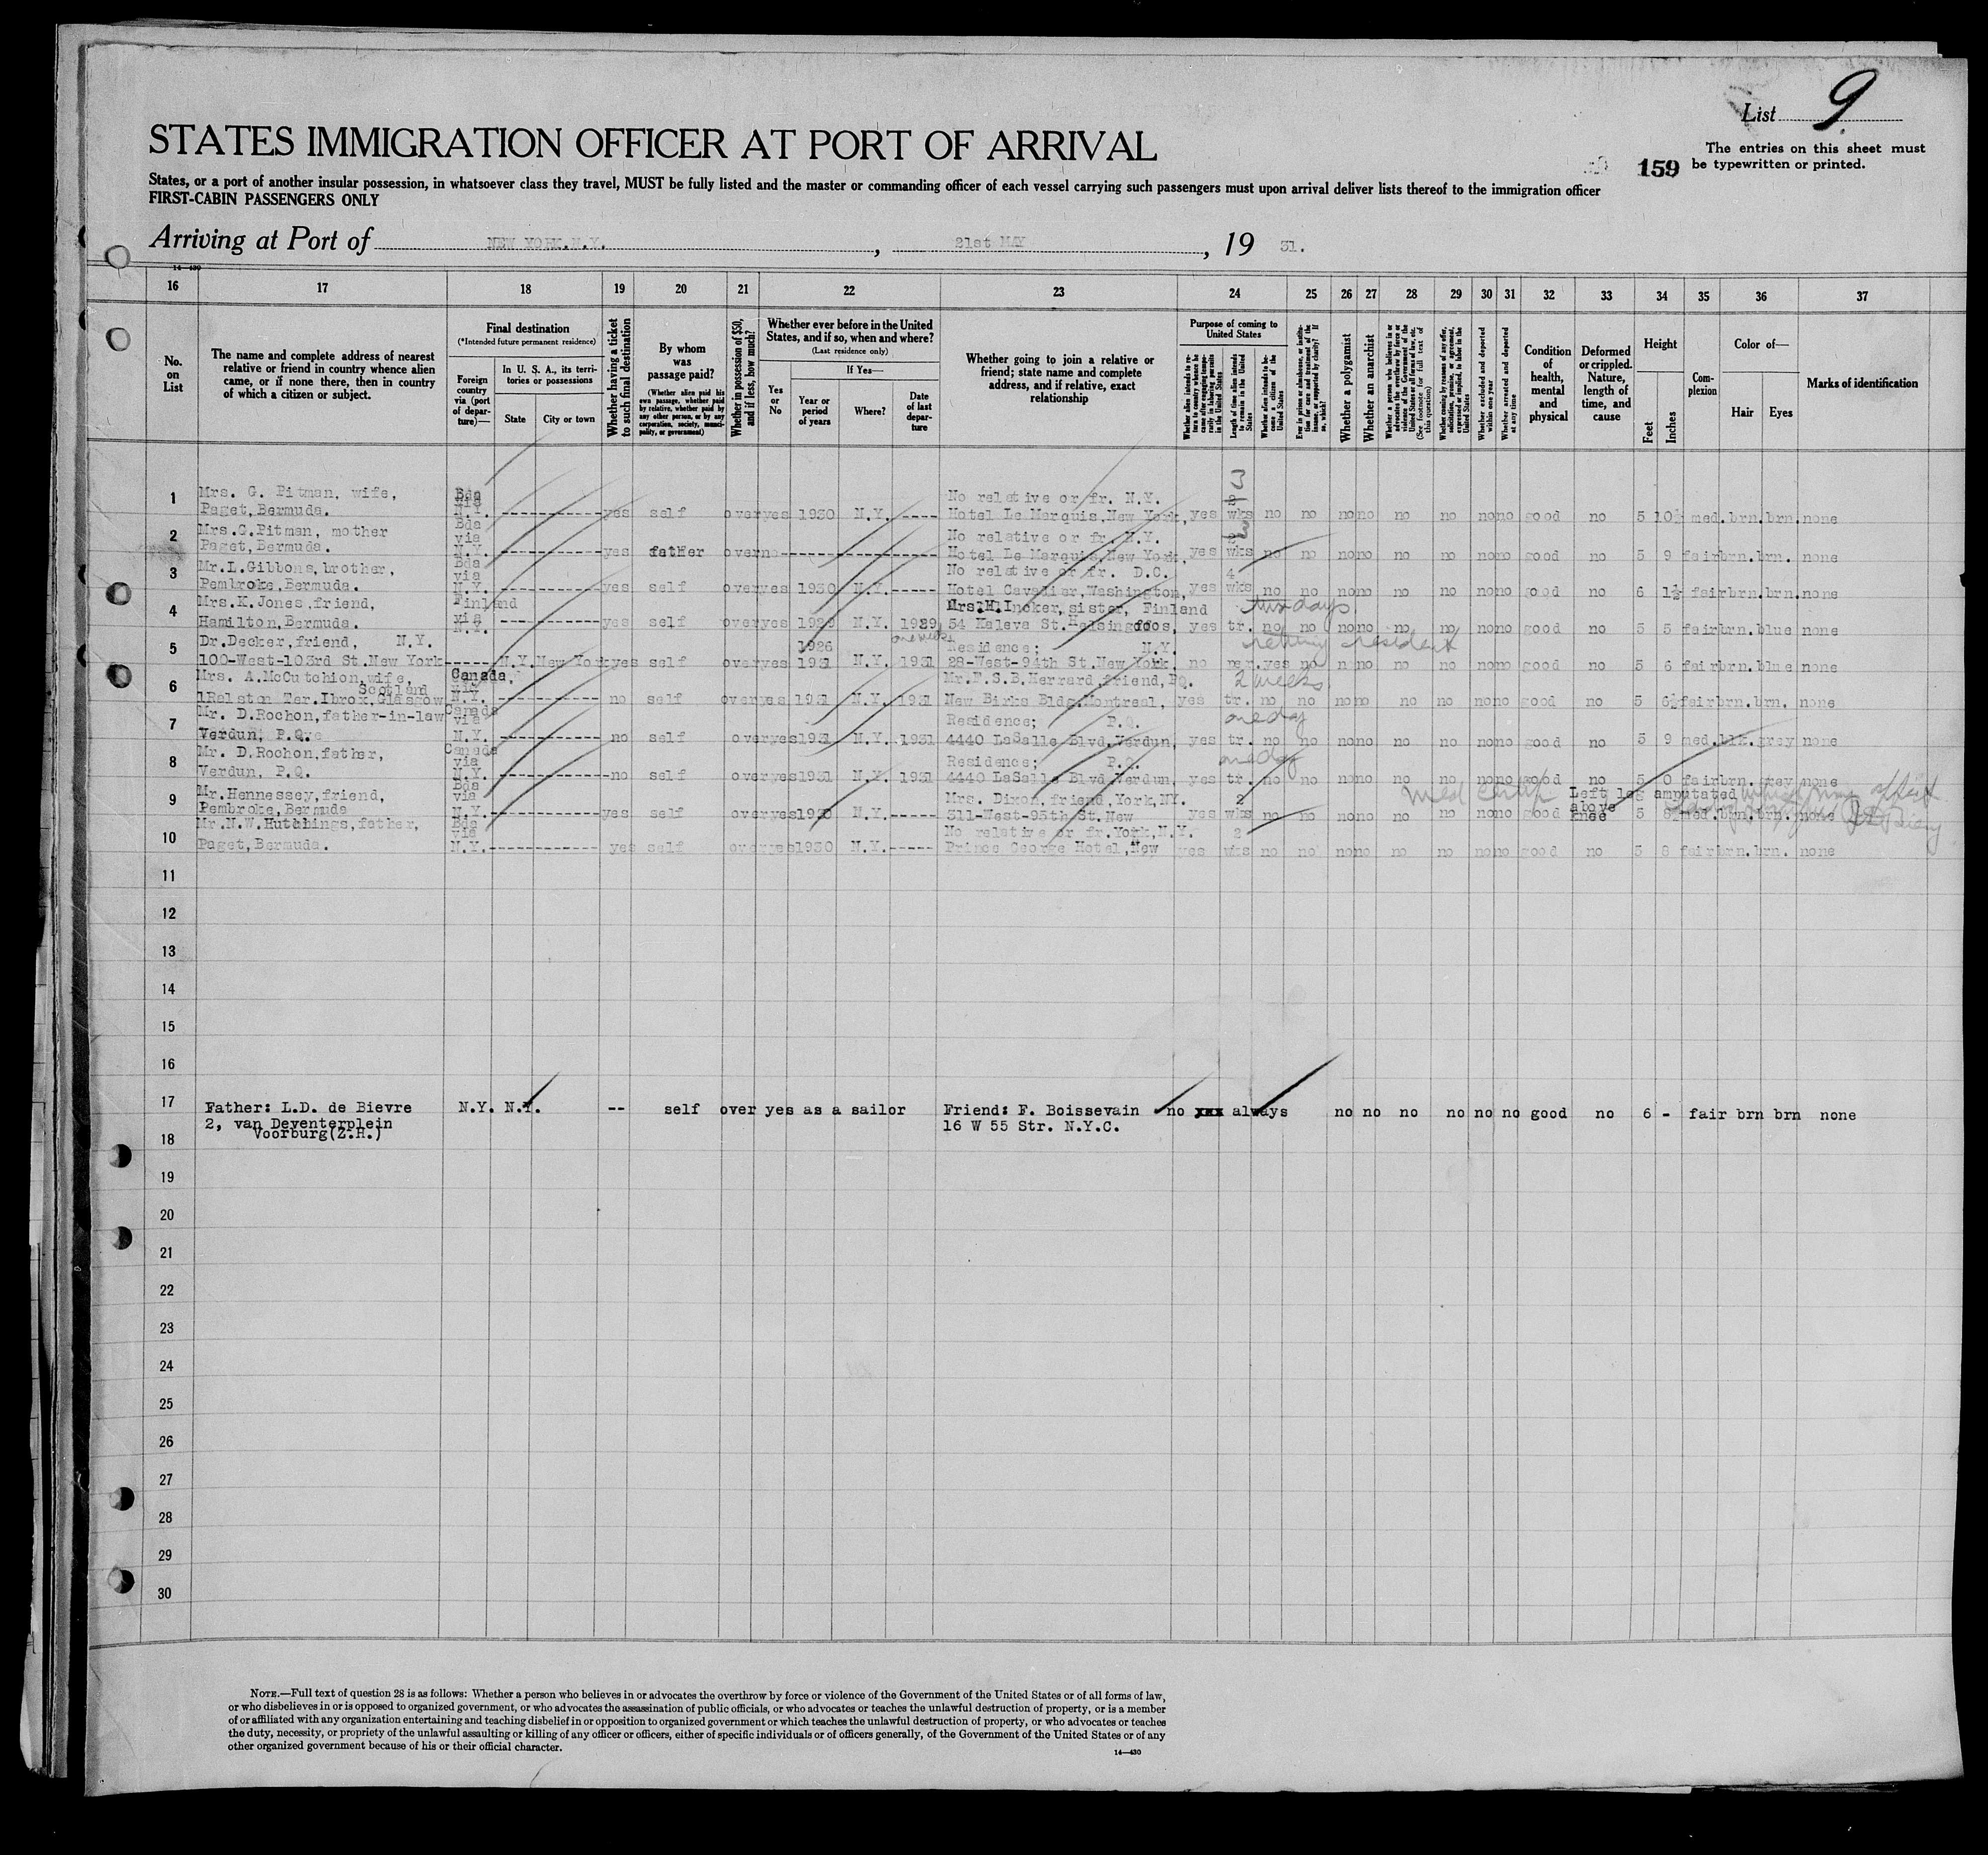 List 9
The entries on this sheet must
be typewritten or printed.
159
STATES IMMIGRATION OFFICER AT PORT OF ARRIVAL
States, or a port of another insular possession, in whatsoever class they travel, MUST be fully listed and the master or commanding officer of each vessel carrying such passengers must upon arrival deliver lists thereof to the immigration officer
FIRST-CABIN PASSENGERS ONLY
Arriving at Port of NEW YORK.N.Y. , 21st MAY , 19 31.
14-430
16 17 18 19 20 21 22 23 24 25 26 27 28 29 30 31 32 33 34 35 36 37
No. on List
The name and complete address of nearest relative or friend in country whence alien came, or if none there, then in country of which a citizen or subject.
Final destination
(*Intended future permanent residence)
Foreign country via (port of departure)—
In U. S. A., its territories or possessions
State
City or town
Whether having a ticket to such final destination
By whom was passage paid?
(Whether alien paid his own passage, whether paid by relative, whether paid by any other person, or by any corporation, society, municipality, or government)
Whether in possession of $50, and if less, how much?
Whether ever before in the United States, and if so, when and where?
(Last residence only)
Yes or No
If Yes—
Year or period of years
Where?
Date of last departure
Whether going to join a relative or friend; state name and complete address, and if relative, exact relationship
Purpose of coming to United States
Whether alien intends to return to country whence he came after engaging temporarily in laboring pursuits in the United States
Length of time alien intends to remain in the United States
Whether alien intends to become a citizen of the United States
Ever in prison or almshouse, or institution for care and treatment of the insane, or supported by charity? If so, which?
Whether a polygamist
Whether an anarchist
Whether a person who believes in or advocates the overthrow by force or violence of the Government of the United States or all forms of law, etc. (See footnote for full text of this question)
Whether coming by reason of any offer, solicitation, promise, or agreement, expressed or implied, to labor in the United States
Whether excluded and deported within one year
Whether arrested and deported at any time
Condition of health, mental and physical
Deformed or crippled. Nature, length of time, and cause
Height
Feet
Inches
Complexion
Color of—
Hair
Eyes
Marks of identification
1 Mrs. G. Pitman, wife, Bda via No relative or fr. N.Y. 3
Paget,Bermuda. N.Y. yes self over yes 1930 N.Y. ---- Hotel Le Marquis,New York, yes wks no no no no no no no no good no 5 10½ med. brn. brn. none
2 Mrs.G.Pitman, mother Bda via No relative or fr. N.Y. 3
Paget,Bermuda. N.Y. yes father over no Hotel Le Marquis,New York, yes wks no no no no no no no no good no 5 9 fair brn. brn. none
3 Mr.L.Gibbons,brother, Bda via No relative or fr. D.C. 4
Pembroke,Bermuda. N.Y. yes self over yes 1930 N.Y. ----- Hotel Cavalier,Washington, yes wks no no no no no no no no good no 6 1½ fair brn. brn. none
4 Mrs.K.Jones,friend, Finland via Mrs.H.Incker,sister, Finland two days
Hamilton,Bermuda. N.Y. yes self over yes 1929 N.Y. 1929 34 Kaleva St.Helsingfos, yes tr. no no no no no no no no good no 5 5 fair brn. blue none
5 Dr.Decker,friend, N.Y. 1926 one week Residence; N.Y. return resident
100-West-103rd St.New York ----- N.Y. New York yes self over yes 1931 N.Y. 1931 28-West-94th St.New York, no per. yes no n no no no no no good no 5 6 fair brn. blue none
6 Mrs. A.McCutchion,wife, Canada, via Mr.F.S.B.Herrard,friend,PQ. 2 weeks
Scotland
1Ralston Ter.Ibrox,Glasgow N.Y. no self over yes 1931 N.Y. 1931 New Birks Bldg.Montreal, yes tr. no no no no no no no no good no 5 6½ fair brn. brn. none
7 Mr. D.Rochon,father-in-law Canada via Residence; P.Q. one day
Verdun, P.Q. N.Y. no self over yes 1931 N.Y. 1931 4440 LaSalle Blvd,Verdun, yes tr. no no no no no no no no good no 5 9 med. blk. grey none
8 Mr. D.Rochon,father, Canada via Residence; P.Q. one day
Verdun, P.Q. N.Y. no self over yes 1931 N.Y. 1931 4440 LaSalle Blvd,Verdun, yes tr. no no no no no no no no good no 5 0 fair brn. grey none
9 Mr.Hennessey,friend, Bda via Mrs. Dixon,friend,York,NY. 2 Med Certif Left leg amputated
Pembroke,Bermuda N.Y. yes self over yes 1930 N.Y. ----- 311-West-95th St.New yes wks no no no no no no no no good above knee 5 8½ med. brn. brn. none
10 Mr.N.W.Hutchings,father, Bda via No relative or fr.York,N.Y. 2
Paget,Bermuda. N.Y. yes self over yes 1930 N.Y. ----- Prince George Hotel,New yes wks no no no no no no no no good no 5 8 fair brn. brn. none
11
12
13
14
15
16
17 Father: L.D. de Bievre N.Y. N.Y. -- self over yes as a sailor Friend: F. Boissevain no xxx always no no no no no no good no 6 - fair brn brn none
2, van Deventerplein 16 W 55 Str. N.Y.C.
Voorburg(Z.H.)
18
19
20
21
22
23
24
25
26
27
28
29
30
NOTE.—Full text of question 28 is as follows: Whether a person who believes in or advocates the overthrow by force or violence of the Government of the United States or of all forms of law,
or who disbelieves in or is opposed to organized government, or who advocates the assassination of public officials, or who advocates or teaches the unlawful destruction of property, or is a member
of or affiliated with any organization entertaining and teaching disbelief in or opposition to organized government or which teaches the unlawful destruction of property, or who advocates or teaches
the duty, necessity, or propriety of the unlawful assaulting or killing of any officer or officers, either of specific individuals or of officers generally, of the Government of the United States or of any
other organized government because of his or their official character.
14—430